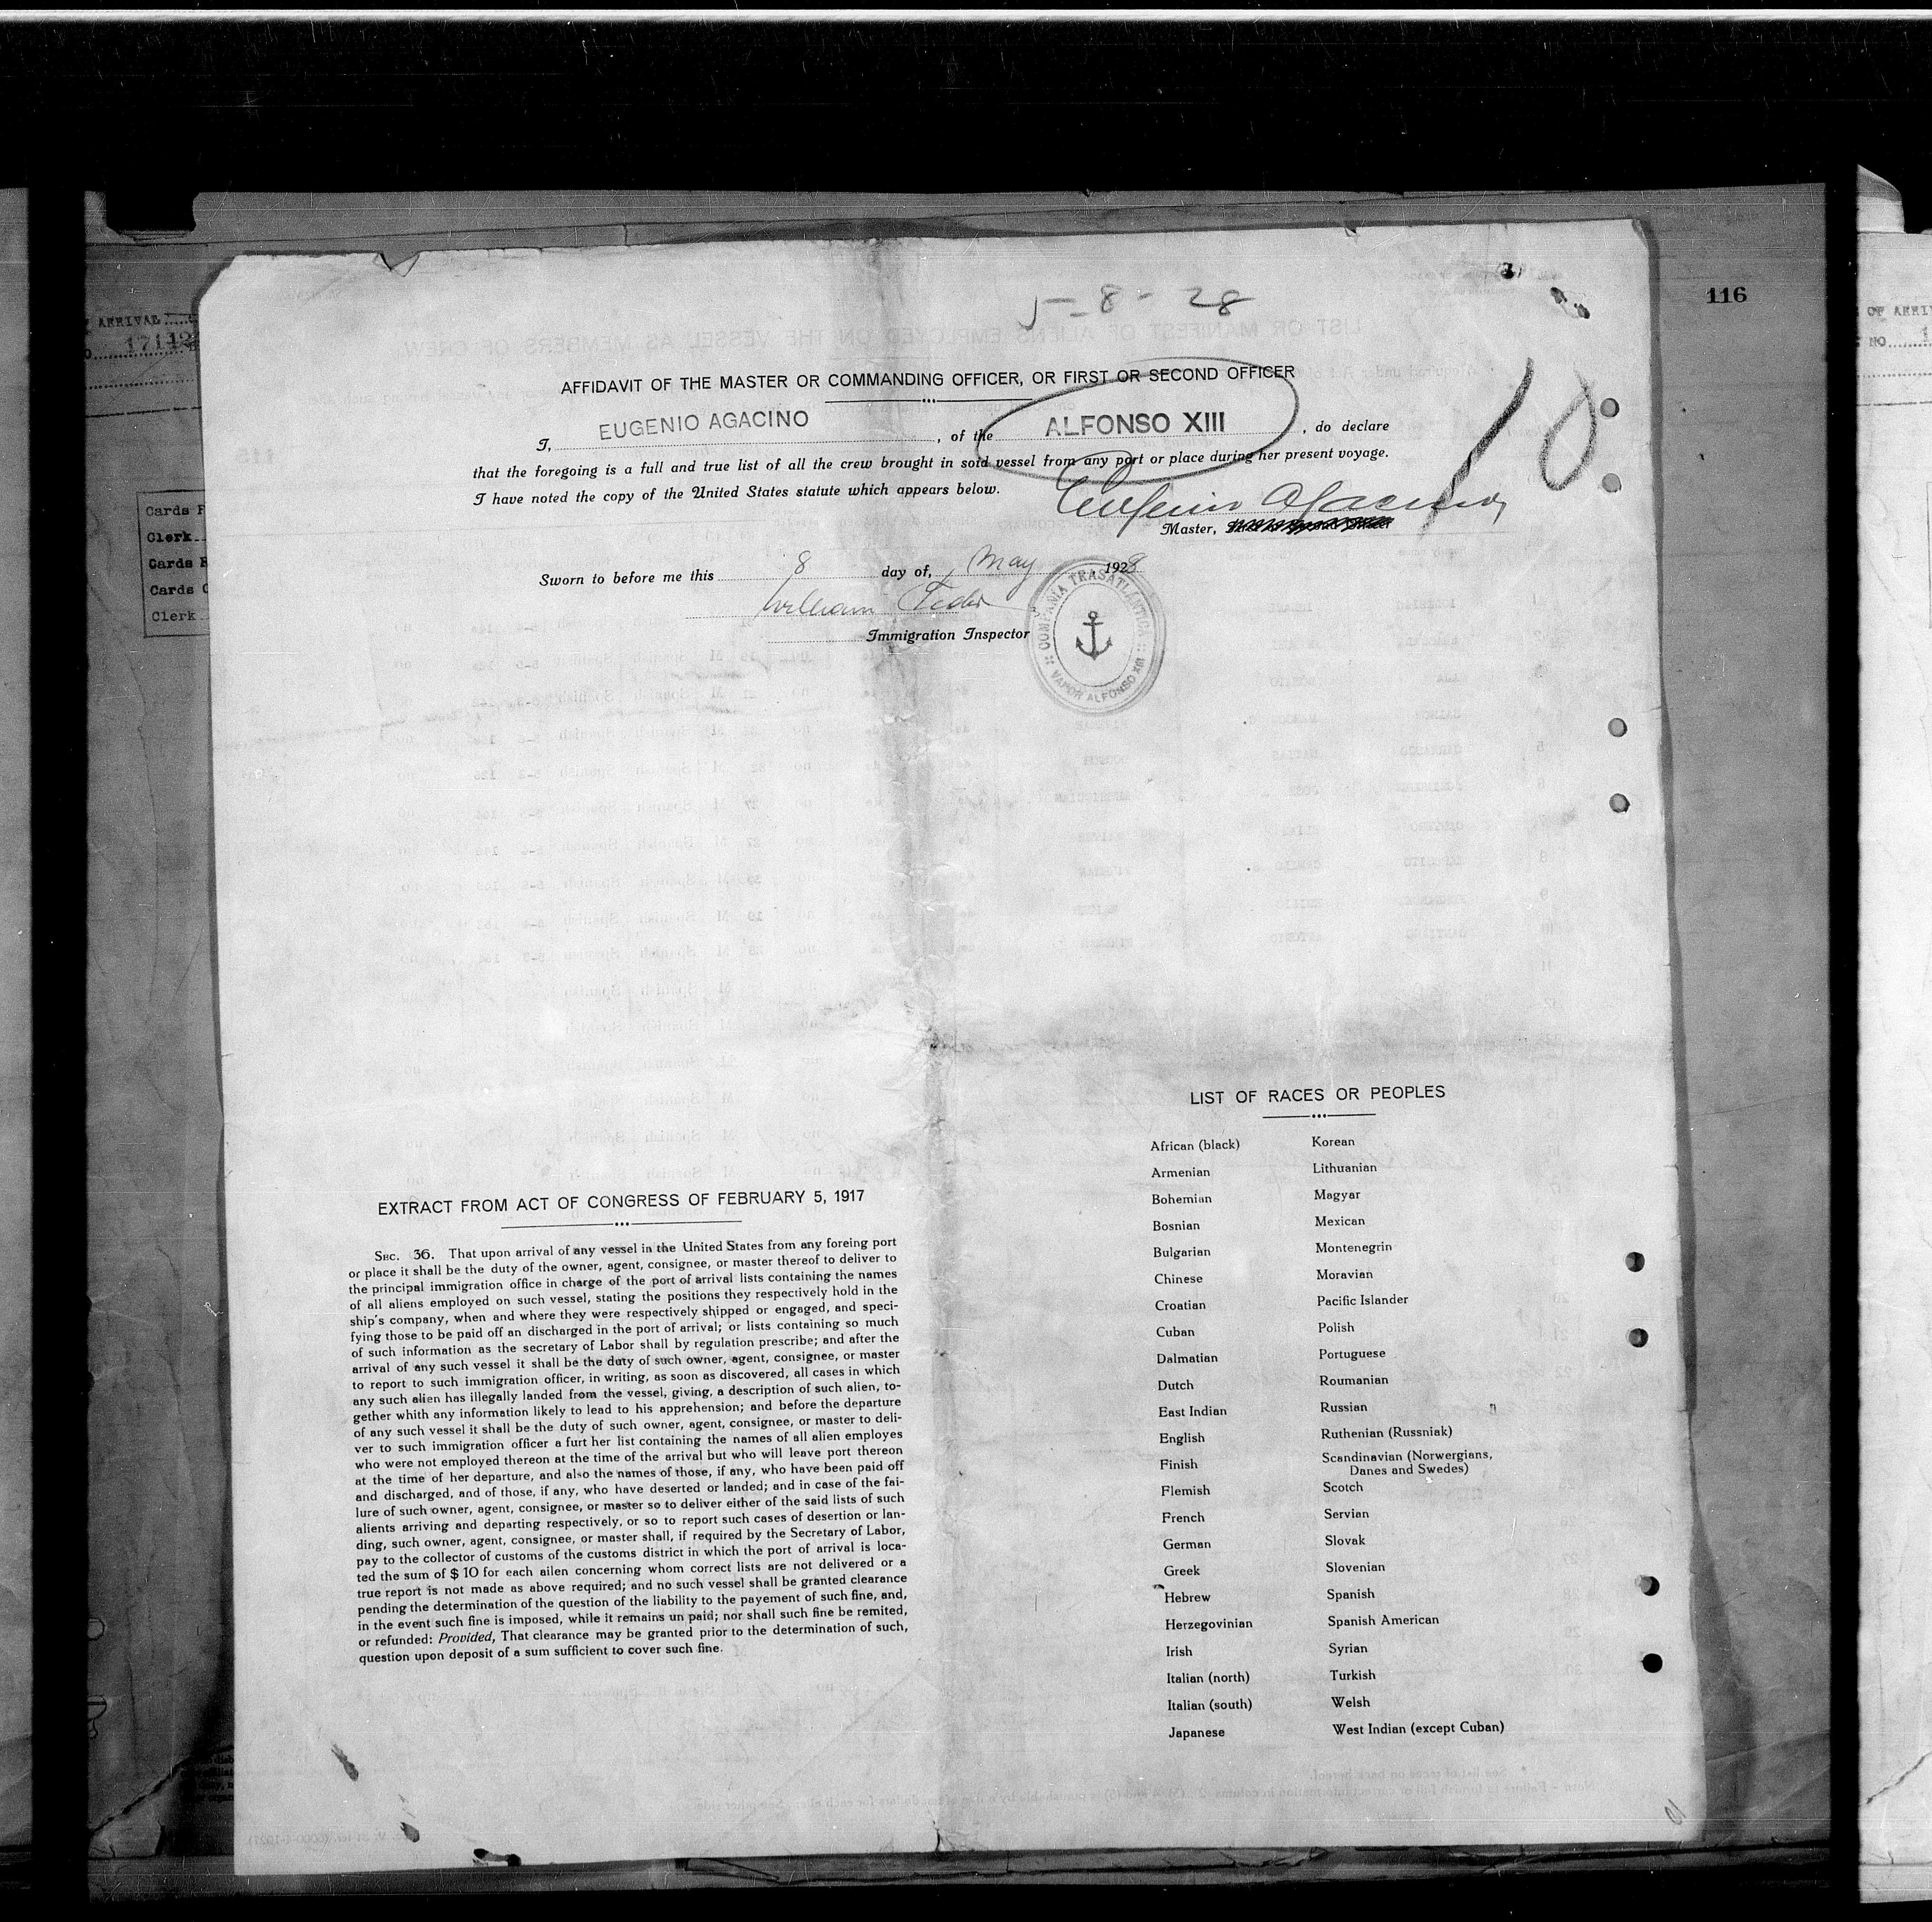 116
ARRIVAL
17112
OF ARRI
NO
Cards
Clerk
Cards
Cards
Clerk
5-8-28
10
AFFIDAVIT OF THE MASTER OR COMMANDING OFFICER, OR FIRST OR SECOND OFFICER
I, EUGENIO AGACINO, of the ALFONSO XIII, do declare
that the foregoing is a full and true list of all the crew brought in said vessel from any port or place during her present voyage.
I have noted the copy of the United States statute which appears below.
Eugenio Agacino
Master,
Sworn to before me this 8 day of, May 1928
William
Immigration Inspector
COMPAÑIA TRASATLANTICA
VAPOR ALFONSO XIII
EXTRACT FROM ACT OF CONGRESS OF FEBRUARY 5, 1917
SEC. 36. That upon arrival of any vessel in the United States from any foreing port
or place it shall be the duty of the owner, agent, consignee, or master thereof to deliver to
the principal immigration office in charge of the port of arrival lists containing the names
of all aliens employed on such vessel, stating the positions they respectively hold in the
ship's company, when and where they were respectively shipped or engaged, and speci-
fying those to be paid off an discharged in the port of arrival; or lists containing so much
of such information as the secretary of Labor shall by regulation prescribe; and after the
arrival of any such vessel it shall be the duty of such owner, agent, consignee, or master
to report to such immigration officer, in writing, as soon as discovered, all cases in which
any such alien has illegally landed from the vessel, giving, a description of such alien, to-
gether whith any information likely to lead to his apprehension; and before the departure
of any such vessel it shall be the duty of such owner, agent, consignee, or master to deli-
ver to such immigration officer a furt her list containing the names of all alien employes
who were not employed thereon at the time of the arrival but who will leave port thereon
at the time of her departure, and also the names of those, if any, who have been paid off
and discharged, and of those, if any, who have deserted or landed; and in case of the fai-
lure of such owner, agent, consignee, or master so to deliver either of the said lists of such
alients arriving and departing respectively, or so to report such cases of desertion or lan-
ding, such owner, agent, consignee, or master shall, if required by the Secretary of Labor,
pay to the collector of customs of the customs district in which the port of arrival is loca-
ted the sum of $ 10 for each ailen concerning whom correct lists are not delivered or a
true report is not made as above required; and no such vessel shall be granted clearance
pending the determination of the question of the liability to the payement of such fine, and,
in the event such fine is imposed, while it remains un paid; nor shall such fine be remited,
or refunded: Provided, That clearance may be granted prior to the determination of such,
question upon deposit of a sum sufficient to cover such fine.
LIST OF RACES OR PEOPLES
African (black)
Armenian
Bohemian
Bosnian
Bulgarian
Chinese
Croatian
Cuban
Dalmatian
Dutch
East Indian
English
Finish
Flemish
French
German
Greek
Hebrew
Herzegovinian
Irish
Italian (north)
Italian (south)
Japanese
Korean
Lithuanian
Magyar
Mexican
Montenegrin
Moravian
Pacific Islander
Polish
Portuguese
Roumanian
Russian
Ruthenian (Russniak)
Scandinavian (Norwergians,
Danes and Swedes)
Scotch
Servian
Slovak
Slovenian
Spanish
Spanish American
Syrian
Turkish
Welsh
West Indian (except Cuban)